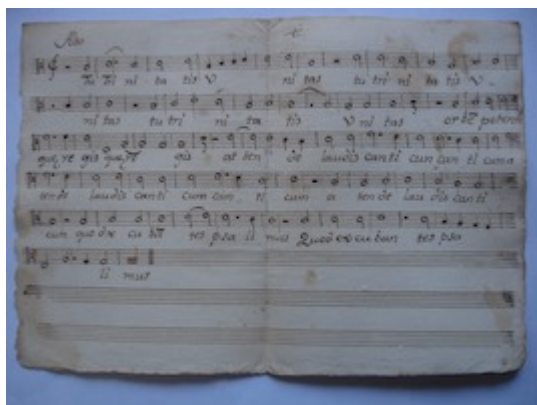 Tu tri ni ta tis V ni tas tu tri ni ta tis V
ni tas tu tri ni ta tis V ni tas orbē potent
que re gis que rē gis at ten de laudis can ti cum can ti cum a
tende laudis can ti cum can ti cum a ten de lau dis can ti
cum quod ex cu bā tes psa li mus Quod ex cu ban tes psa
li mus